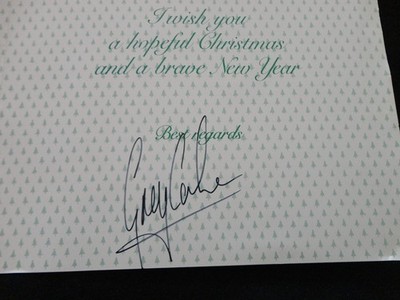 I wish you
a hopeful Christmas
and a brave New Year
Best regards
Greg Lake